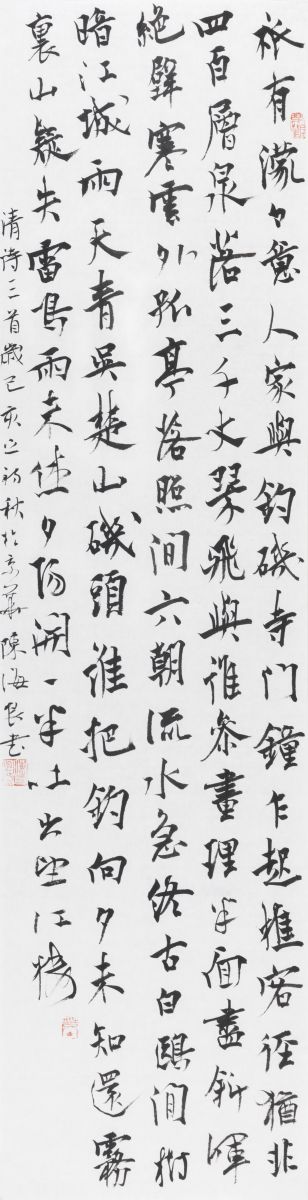 祇有濛々意人家與釣磯寺門鐘乍起樵客徑猶非
四百層泉落三千丈翠飛與誰參畫理半面盡斜暉
絕壁寒雲外孤亭落照間六朝流水急終古白鷗閒樹
暗江城雨天青吳楚山磯頭誰把釣向夕未知還霧
裏山疑失雷鳴雨未休夕陽開一半吐出望江樓
清詩三首歲己亥之初秋於京華陳海良書